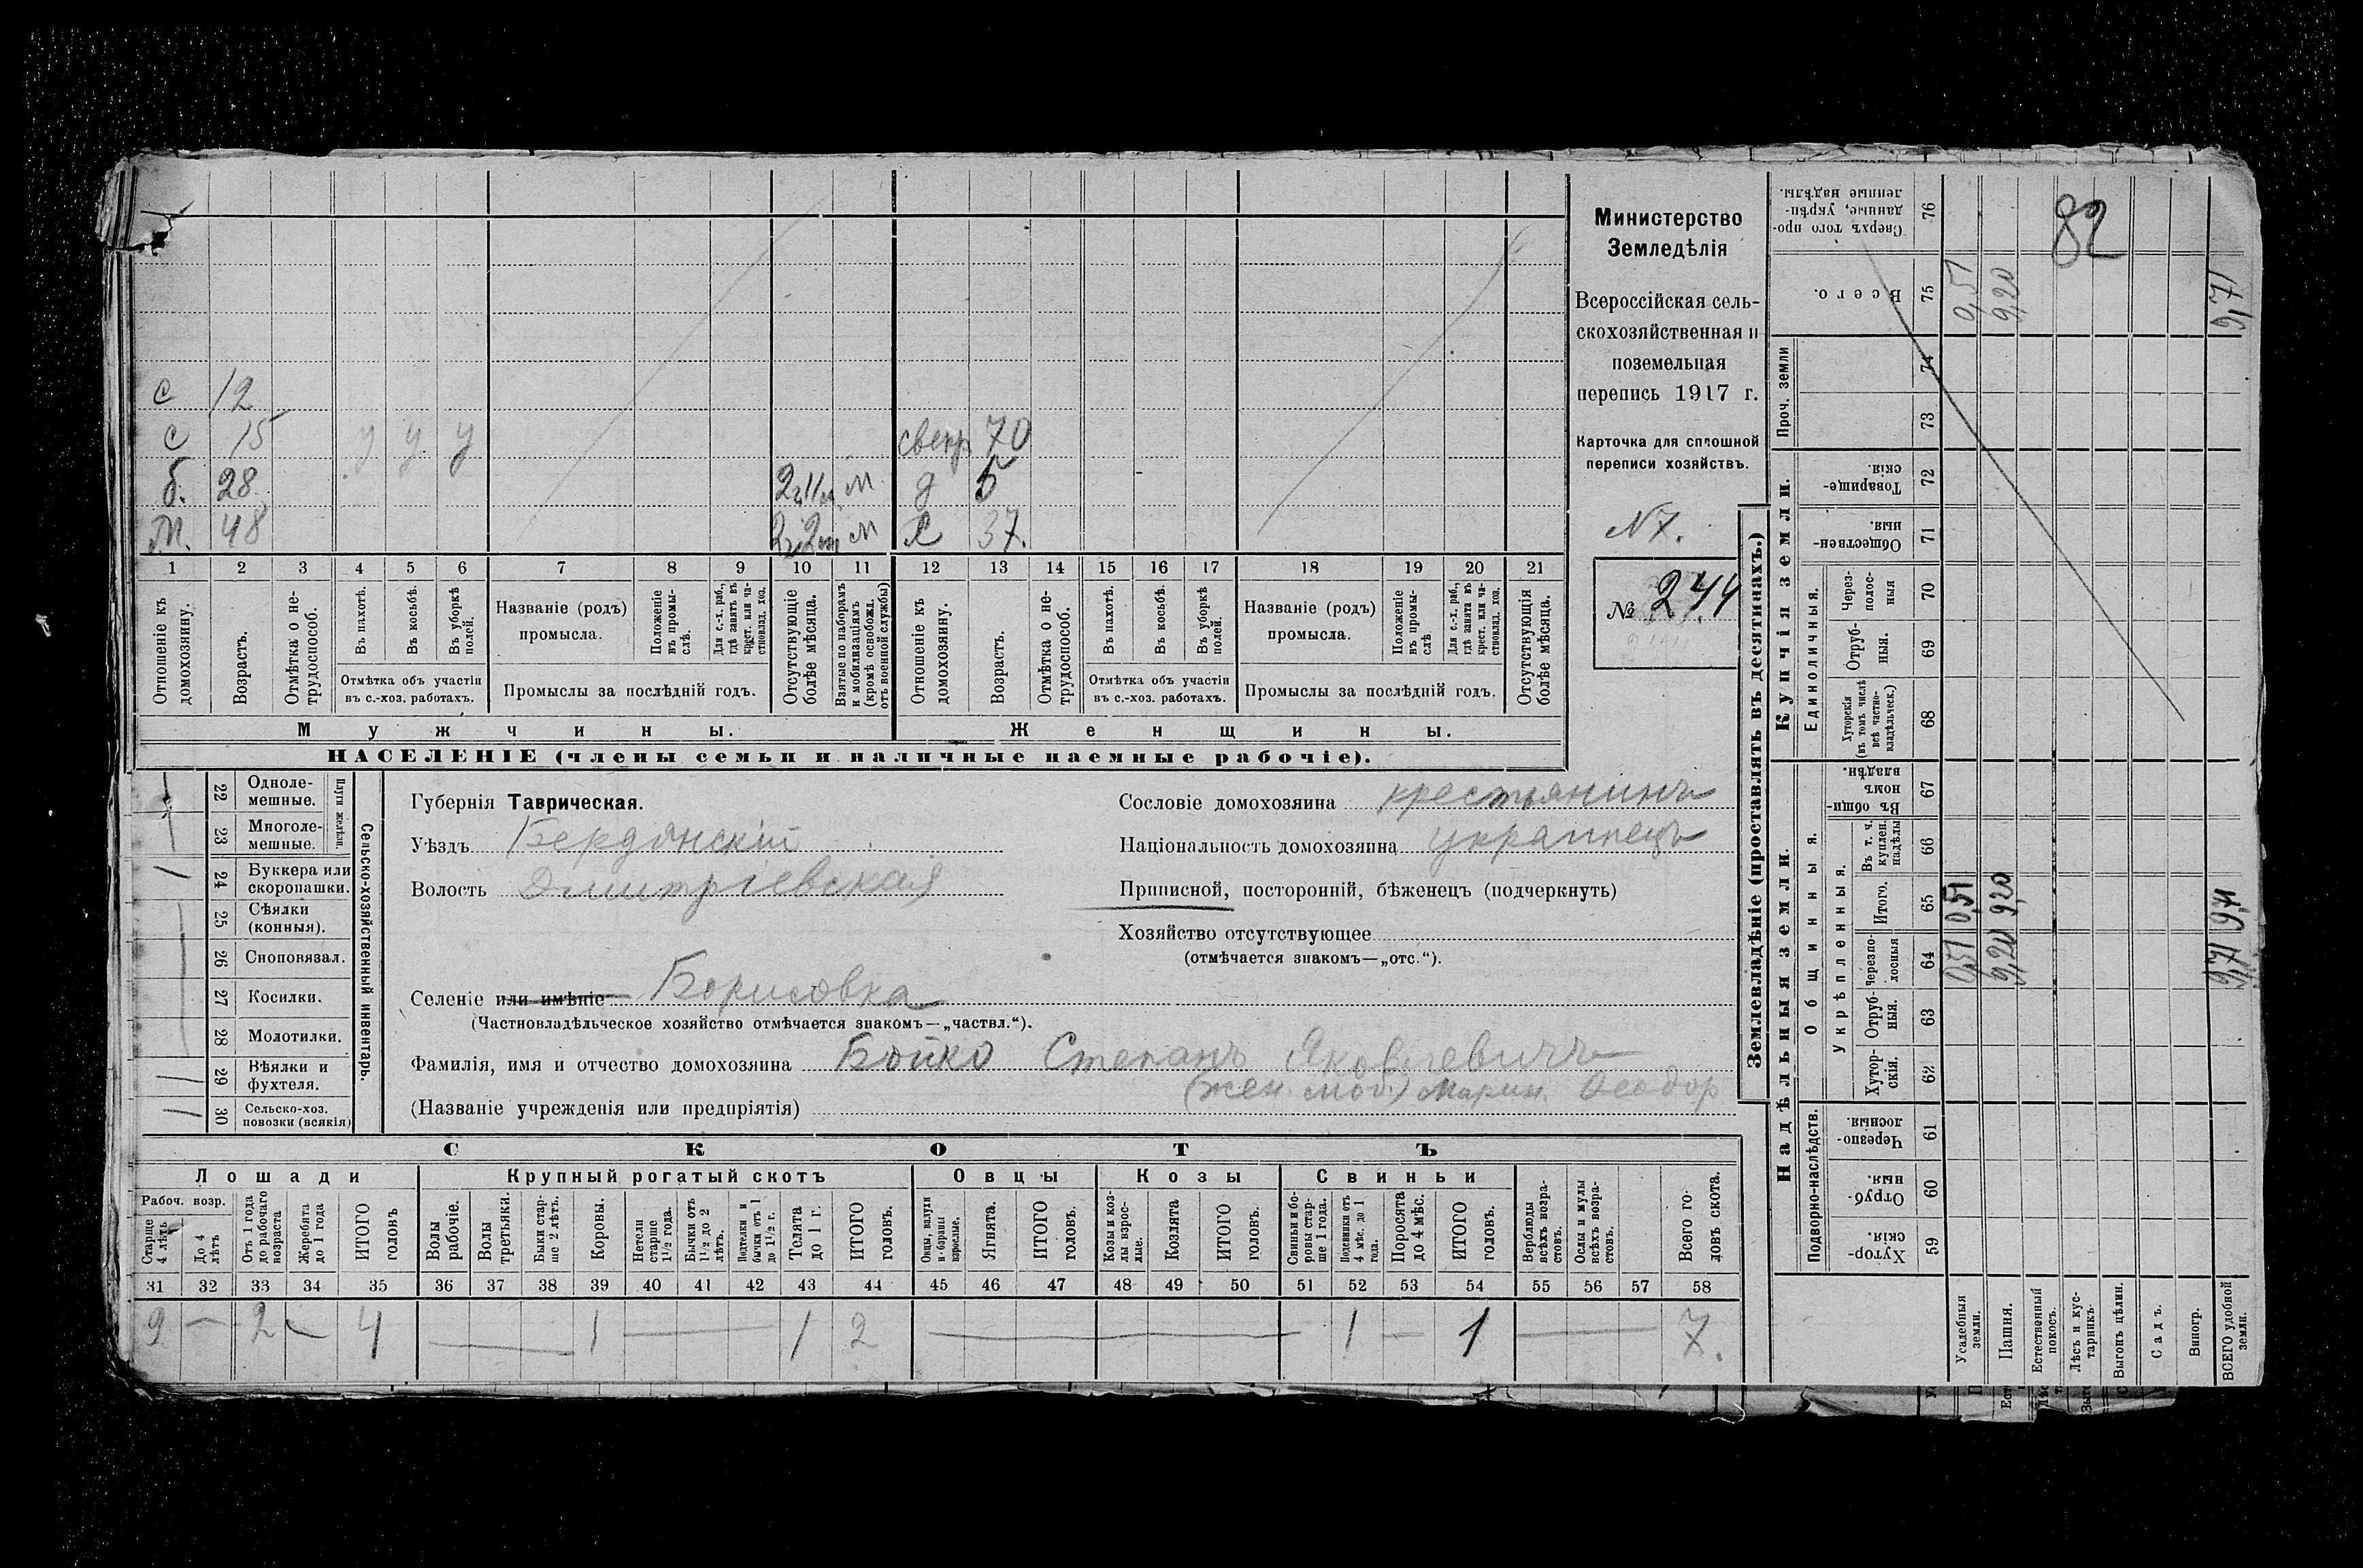 Министерство
Земледѣлія
Всероссійская сель-
скохозяйственная и
поземельная
перепись 1917 г.
Карточка для сплошной
переписи хозяйствъ.
N 7.
№ 244
82
с 12
с 15 у у у свекр 70
б. 28 2г11м м. д 5
М. 48 м Х 37.
1 2 3 4 5 6 7 8 9 10 11 12 13 14 15 16 17 18 19 20 21
Отношеніе къ домохозяину.
Возрастъ.
Отмѣтка о не-трудоспособ.
Въ пахотѣ.
Въ косьбѣ.
Въ уборкѣ полей.
Отмѣтка объ участіи въ с.-хоз. работахъ.
Названіе (родъ) промысла.
Положеніе въ промы-слѣ.
Для с.-х. раб., гдѣ занятъ въ крест. или ча-стновлад. хоз.
Промыслы за послѣдній годъ.
Отсутствующіе болѣе мѣсяца.
Взятые по наборамъ и мобилизаціямъ (кромѣ освобожд. отъ военной службы)
Отношеніе къ домохозяину.
Возрастъ.
Отмѣтка о не-трудоспособ.
Въ пахотѣ.
Въ косьбѣ.
Въ уборкѣ полей.
Отмѣтка объ участіи въ с.-хоз. работахъ.
Названіе (родъ) промысла.
Положеніе въ промы-слѣ
Для с.-х. раб., гдѣ занята въ крест. или ча-стновлад. хоз.
Промыслы за послѣдній годъ.
Отсутствующія болѣе мѣсяца.
Мужчины.
Женщины.
НАСЕЛЕНІЕ (члены семьи и наличные наемные рабочіе).
Сельско-хозяйственный инвентарь.
Плуги желѣзн.
22 Одноле-мешные.
23 Многоле-мешные.
24 Буккера или скоропашки.
25 Сѣялки (конныя).
26 Сноповязал.
27 Косилки.
28 Молотилки.
29 Вѣялки и фухтеля.
30 Сельско-хоз. повозки (всякія)
Губернія Таврическая.
Уѣздъ Бердянскій
Волость Дмитріевская
Селеніе или имѣніе Борисовка
(Частновладѣльческое хозяйство отмѣчается знакомъ—„частвл.“).
Фамилія, имя и отчество домохозяина Бойко Степанъ Яковлевичъ
(жен. моб.) Марин. Ѳеодор
(Названіе учрежденія или предпріятія)
Сословіе домохозяина крестьянинъ
Національность домохозяина украинецъ
Приписной, посторонній, бѣженецъ (подчеркнуть)
Хозяйство отсутствующее
(отмѣчается знакомъ—„отс.“).
СКОТЪ
Лошади
Крупный рогатый скотъ
Овцы
Козы
Свиньи
Рабоч. возр.
Старше 4 лѣтъ
До 4 лѣтъ
Отъ 1 года до рабочаго возраста
Жеребята до 1 года
ИТОГО головъ
Волы рабочіе.
Волы третьяки.
Быки стар-ше 2 лѣтъ.
Коровы.
Нетели старше 1½ года.
Бычки отъ 1½ до 2 лѣтъ.
Подтелки и бычки отъ 1 до 1½ г.
Телята до 1 г.
ИТОГО головъ.
Овцы, валухи и бараны взрослые.
Ягнята.
ИТОГО головъ.
Козы и коз-лы взрос-лые.
Козлята
ИТОГО головъ.
Свиньи и бо-ровы стар-ше 1 года.
Подсвинки отъ 4 мѣс. до 1 года.
Поросята до 4 мѣс.
ИТОГО головъ.
Верблюды всѣхъ возра-стовъ.
Ослы и мулы всѣхъ возра-стовъ.
Всего го-ловъ скота.
31 32 33 34 35 36 37 38 39 40 41 42 43 44 45 46 47 48 49 50 51 52 53 54 55 56 57 58
2 — 2 — 4 — 1 — 1 2 — 1 — 1 — 7.
Землевладѣніе (проставлять въ десятинахъ.)
Надѣльныя земли.
Купчія земли.
Проч. земли
Подворно-наслѣдств.
Общинныя.
Укрѣпленныя.
Единоличныя.
59 Хутор-скія.
60 Отруб-ныя.
61 Черезпо-лосныя.
62 Хутор-скія.
63 Отруб-ныя.
64 Черезпо-лосныя 0,51 9,20 9,71
65 Итого. 0,51 9,20 9,71
66 Въ т. ч. куплен. надѣлы
67 Въ общи-нномъ владѣн.
68 Хуторскія (въ томъ числѣ всѣ частно-владѣльческ.)
69 Отруб-ныя.
70 Через-полос-ныя
71 Обществен-ныя.
72 Товарище-скія.
73
74
75 Всего. 0,51 9,20 9,71
76 Сверхъ того про-данные, укрѣп-ленные надѣлы.
Усадебныя земли.
Пашня.
Естественный покосъ.
Лѣсъ и кус-тарникъ.
Выгонъ цѣлин.
Садъ.
Виногр.
ВСЕГО удобной земли.